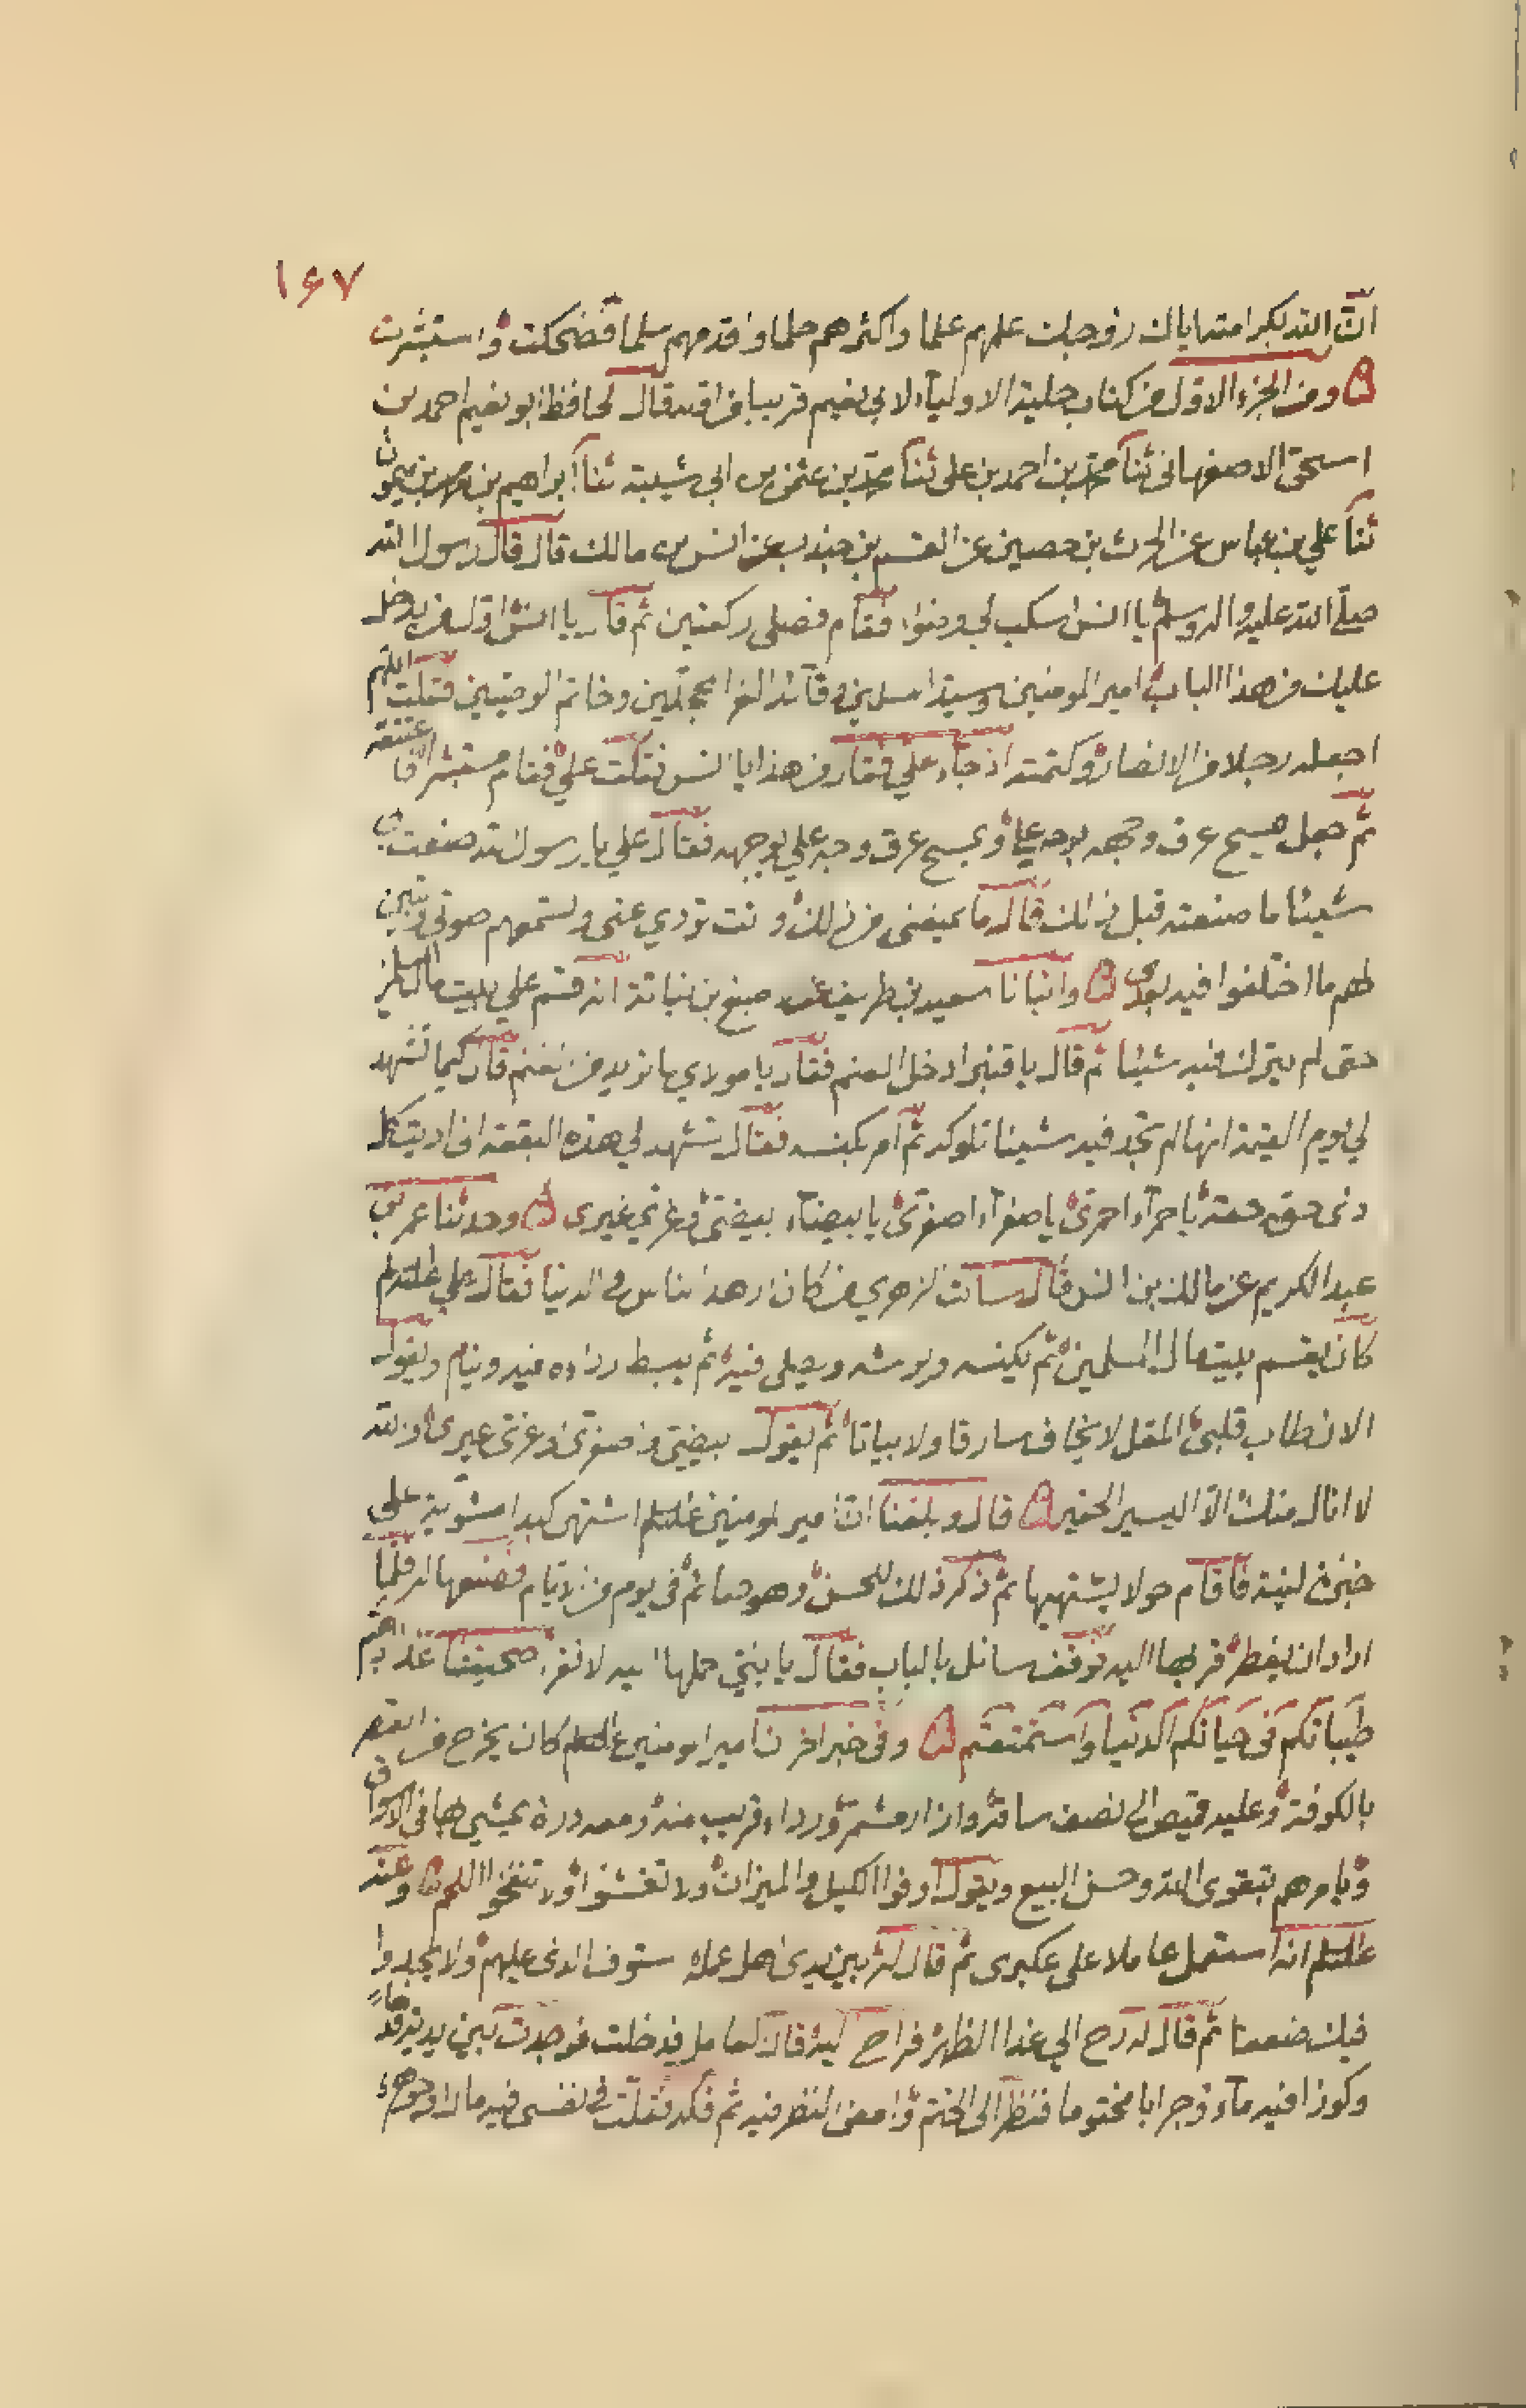 ١٦٧
ان الله بكرامته اياك زوجك اعلمهم علما واكثرهم حلما واقدمهم سلما فضحكت واستبشرت
ه ومن الجزء الاول من كتاب حلية الاولياء لابي نعيم قريبا من اقسه قال الحافظ ابو نعيم احمد بن
اسحق الاصفهاني ثنا محمد بن احمد بن علي ثنا محمد بن عثمن بن ابي شيبة ثنا ابراهيم بن محمد بن ميمون
ثنا علي بن عباس عن الحرث بن حصين عن القسم بن جندب عن انس بن مالك قال قال رسول الله
صلى الله عليه واله وسلم يا انس اسكب لي وضوا، فقام فصلى ركعتين ثم قال يا انس اول من يدخل
عليك من هذا الباب امير المومنين وسيد المسلمين وقائد الغر المحجلين وخاتم الوصيين فقلت اللهم
اجعله رجلا من الانصار وكتمته اذ جاء علي فقال من هذا يا انس فقلت علي فقام مستبشرا فاعتنقه
ثم جعل يمسح عرق وجهه بوجه علي ويمسح عرق وجه علي بوجهه فقال علي يا رسول الله صنعت بي
شيئا ما صنعته قبل ذلك قال ما يمنعني من ذلك وانت تودي عني وتسمعهم صوتي وتبين
لهم ما اختلفوا فيه بعدي ه وانبانا سعيد بن طريف عن اصبغ بن نباتة انه قسم علي بيت مال المسلمين
حتى لم يترك فيه شيئا ثم قال يا قنبر ادخل الغنم فقال يا مولاي ما تريد من الغنم قال كيما تشهد
لي يوم القيمة انها لم تجد فيه شيئا تلوكه ثم امر بكنسه فقال تشهد لي هذه البقعة اني اديت كل
ذي حق حقه يا حمراء احمري يا صفراء اصفري يا بيضاء بيضي وغري غيري ه وحدثنا عمر بن
عبد الكريم عن مالك بن انس قال سالت الزهري من كان ازهد الناس في الدنيا فقال علي عليه السلم
كان يقسم بيت مال المسلمين ثم يكنسه ويرشه ويصلي فيه ثم يبسط رداءه فيه وينام ويقول
الان طاب قلبي المقل لا يخاف سارقا ولا بياتا ثم يقول بيضي واصفري وغري غيري والله
لا انال منك الا اليسير الحقير ه قال وبلغنا ان امير المومنين عليه السلم اشتهى كبدا مشوية على
خبزة لينة فاقام حولا يشتهيها ثم ذكر ذلك للحسن وهو صائم في يوم من الايام فصنعها له فلما
اراد ان يفطر قربها اليه فوقف سائل بالباب فقال يا بني احملها اليه لا تقرء صحيفتنا غدا اذهبتم
طيباتكم في حياتكم الدنيا واستمتعتم ه وفي خبر اخر ان امير المومنين عليه السلم كان يخرج من القصر
بالكوفة وعليه قميص الى نصف ساقه وازار مشمر ورداء قريب منه ومعه درة يمشي بها في الاسواق
ويامرهم بتقوى الله وحسن البيع ويقول اوفوا الكيل والميزان ولا تغشوا ولا تنفخوا اللحم ه وعنه
عليه السلم انه استعمل عاملا على عكبرى ثم قال له بين يدي اهل عمله استوف الذي عليهم ولا يجدوا
فيك ضعفا ثم قال له رح الي غدا الظهر فراح اليه قال العامل فدخلت فوجدت بين يديه قدحا
وكوزا فيه ماء وجرابا مختوما فنظر الى الختم وامعن النظر فيه ثم فكه فقلت في نفسي فيه مال او جوهر